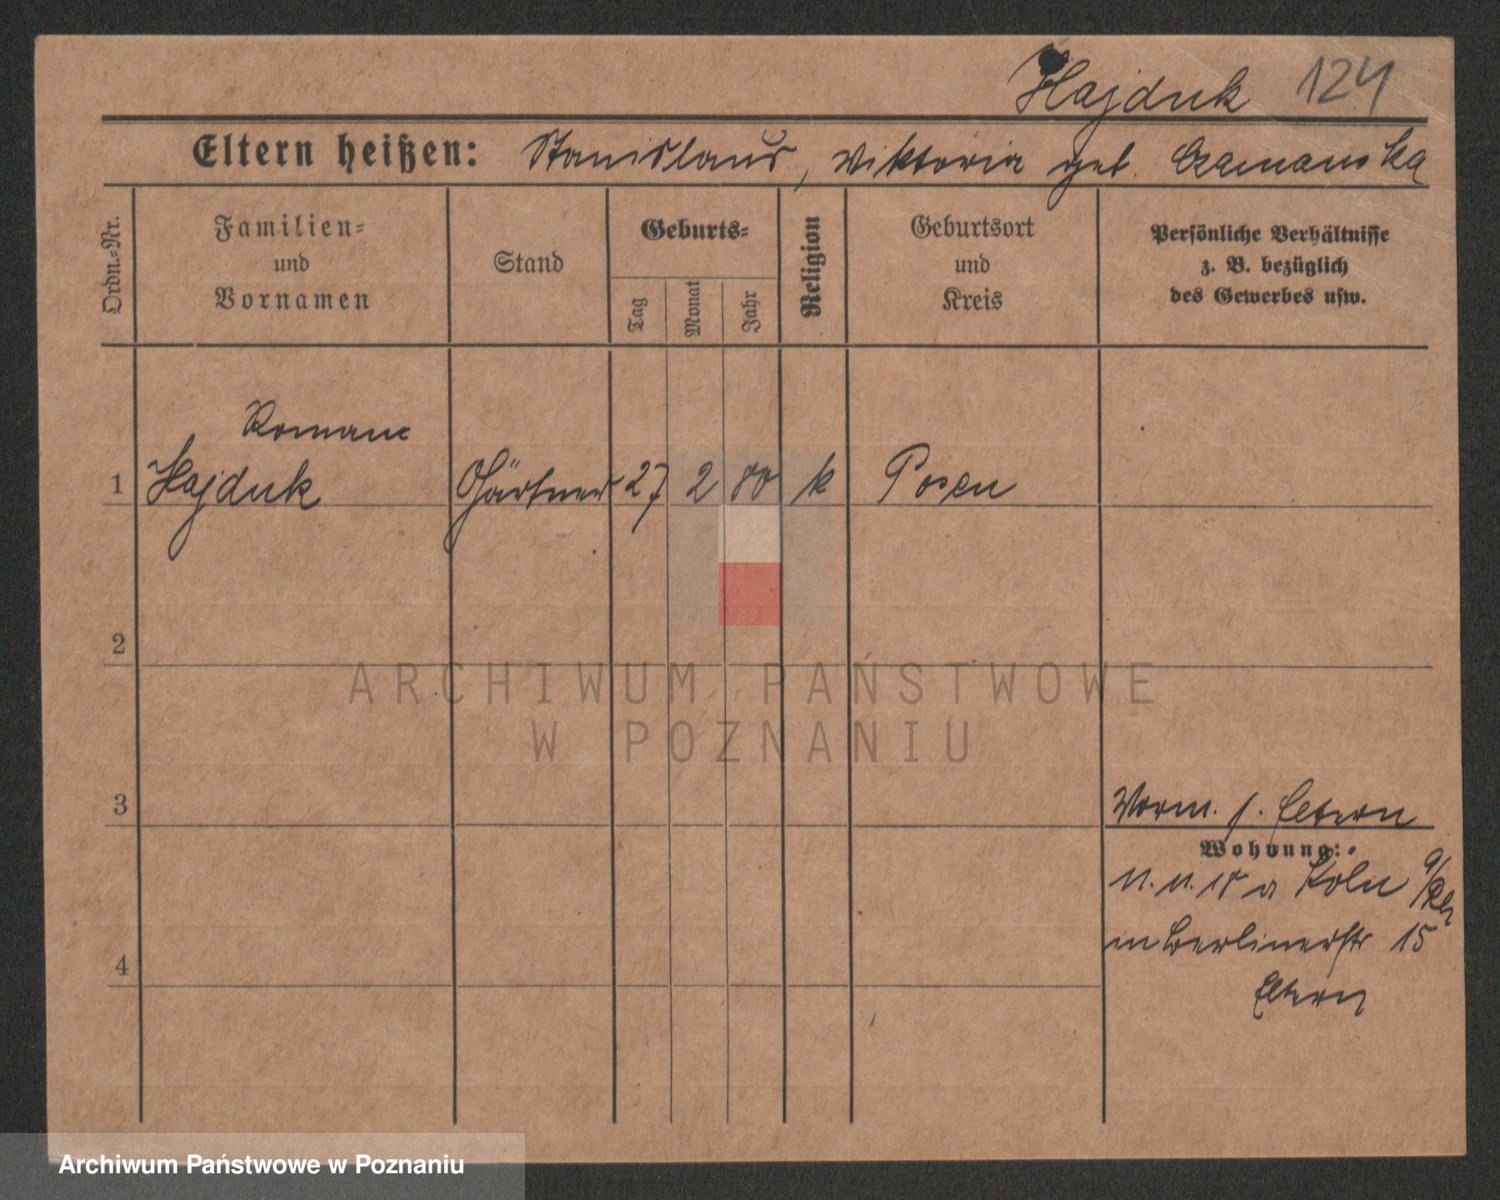 Hajduk 124
Eltern heißen: Stanislaus, Viktoria geb.
Ordn.=Nr.
Familien=
und
Vornamen
Stand
Geburts=
Tag
Monat
Jahr
Religion
Geburtsort
und
Kreis
Persönliche Verhältnisse
z. B. bezüglich
des Gewerbes usw.
Roman
1 Hajduk Gärtner 27 2 80 k Posen
2
ARCHIWUM PAŃSTWOWE
W POZNANIU
3
Vorm. s. Eltern
Wohnung:
Köln
Berlinerstr 15
4
Eltern
Archiwum Państwowe w Poznaniu